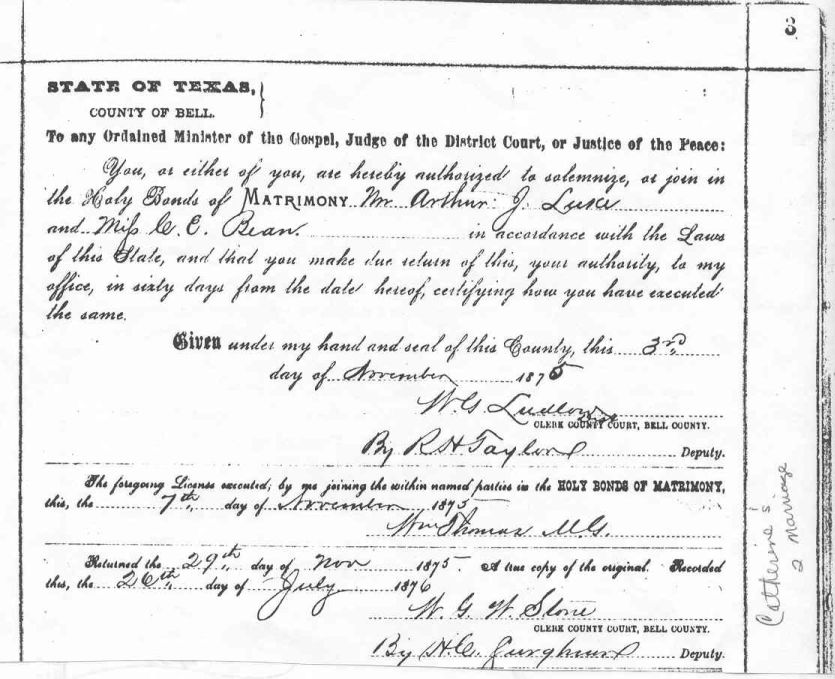 8
STATE OF TEXAS, }
COUNTY OF BELL.
To any Ordained Minister of the Gospel, Judge of the District Court, or Justice of the Peace:
You, or either of you, are hereby authorized to solemnize, or join in
the Holy Bonds of MATRIMONY Mr Arthur J.
and Miss C. E. Bean. in accordance with the Laws
of this State, and that you make due return of this, your authority, to my
office, in sixty days from the date hereof, certifying how you have executed
the same.
Given under my hand and seal of this County, this 3rd
day of November 1875
W. G. Ludlow
CLERK COURT, BELL COUNTY.
By R H Taylor Deputy.
The foregoing License executed; by me joining the within named parties in the HOLY BONDS OF MATRIMONY,
this, the 7th day of November 1875
Wm Thomas M.G.
Returned the 29th day of Nov 1875. A true copy of the original. Recorded
this, the 26th day of July 1876
W. G. W. Stone
CLERK COUNTY COURT, BELL COUNTY.
By H. C. Deputy.
Catherine's
2 Marriage